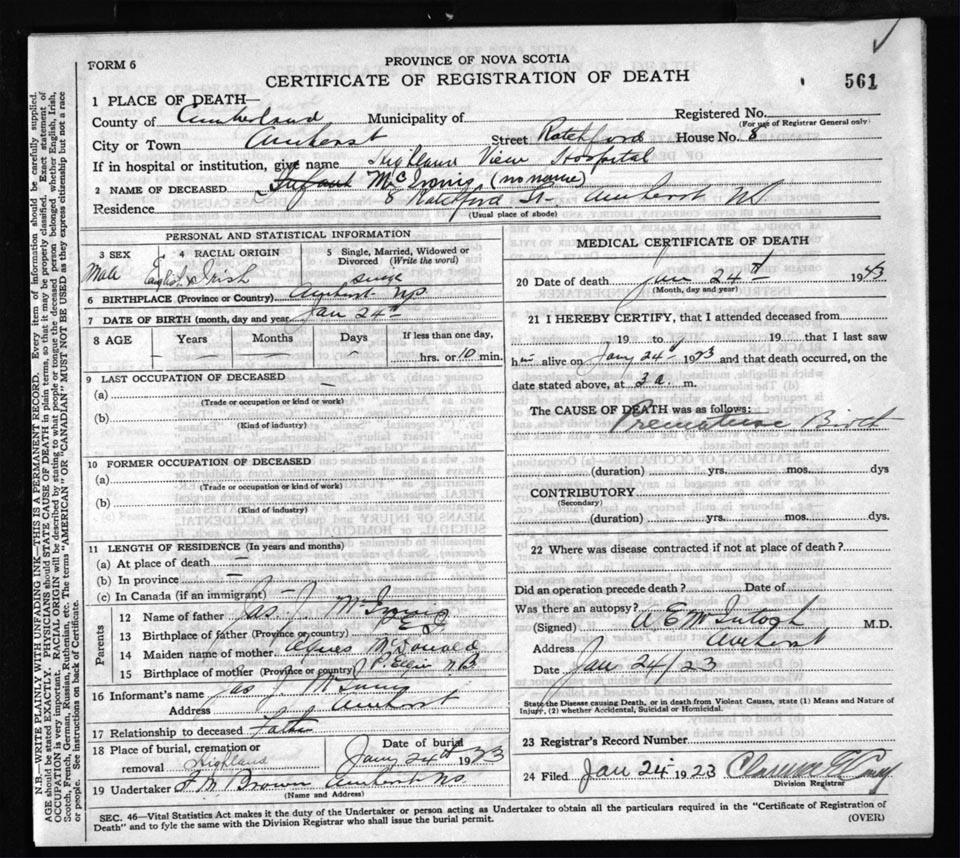 FORM 6
PROVINCE OF NOVA SCOTIA
CERTIFICATE OF REGISTRATION OF DEATH
561
1 PLACE OF DEATH—
County of Cumberland Municipality of Registered No.
(For use of Registrar General only)
City or Town Amherst Street Ratchford House No. 8
If in hospital or institution, give name Highland View Hospital
2 NAME OF DECEASED Infant McInnis (no name)
Residence 8 Ratchford St- Amherst NS
(Usual place of abode)
PERSONAL AND STATISTICAL INFORMATION
3 SEX 4 RACIAL ORIGIN 5 Single, Married, Widowed or
Divorced (Write the word)
Male English & Irish single
6 BIRTHPLACE (Province or Country) Amherst NS
7 DATE OF BIRTH (month, day and year Jan 24th
8 AGE Years Months Days If less than one day,
— — — hrs. or 10 min.
9 LAST OCCUPATION OF DECEASED —
(a)
(Trade or occupation or kind or work)
(b)
(Kind of industry)
10 FORMER OCCUPATION OF DECEASED
(a)
(Trade or occupation or kind or work)
(b)
(Kind of industry)
11 LENGTH OF RESIDENCE (In years and months)
(a) At place of death —
(b) In province —
(c) In Canada (if an immigrant) —
Parents
12 Name of father Jas. J. McInnis
13 Birthplace of father (Province or country) P E I
14 Maiden name of mother McDonald
15 Birthplace of mother (Province or country) Pt Elgin N B
16 Informant's name Jas J McInnis
Address Amherst
17 Relationship to deceased Father
18 Place of burial, cremation or Date of burial
removal Highland Jany 24th 1923
19 Undertaker Brown Amherst NS
(Name and Address)
MEDICAL CERTIFICATE OF DEATH
20 Date of death Jan 24th 1923
(Month, day and year)
21 I HEREBY CERTIFY, that I attended deceased from
19 to 19 that I last saw
h alive on Jany 24th 1923 and that death occurred, on the
date stated above, at 3 a. m.
The CAUSE OF DEATH was as follows:
Premature Birth
(duration) yrs. mos. dys
CONTRIBUTORY
(Secondary)
(duration) yrs. mos. dys.
22 Where was disease contracted if not at place of death?
Did an operation precede death? Date of
Was there an autopsy?
(Signed) McIntosh M.D.
Address Amherst
Date Jan 24/23
State the Disease causing Death, or in death from Violent Causes, state (1) Means and Nature of
Injury, (2) whether Accidental, Suicidal or Homicidal.
23 Registrar's Record Number
24 Filed Jan 24 1923
Division Registrar
SEC. 46—Vital Statistics Act makes it the duty of the Undertaker or person acting as Undertaker to obtain all the particulars required in the "Certificate of Registration of
Death" and to fyle the same with the Division Registrar who shall issue the burial permit. (OVER)
N.B.—WRITE PLAINLY WITH UNFADING INK—THIS IS A PERMANENT RECORD. Every item of information should be carefully supplied.
AGE should be stated EXACTLY. PHYSICIANS should STATE CAUSE OF DEATH in plain terms, so that it may be properly classified. Exact statement of
OCCUPATION is very important. RACIAL ORIGIN will be described by stating to what people or tongue the deceased person belonged whether English, Irish,
Scotch, French, German, Russian, Ruthenian, etc. The terms "AMERICAN" OR "CANADIAN" MUST NOT BE USED as they express citizenship but not a race
or people. See instructions on back of Certificate.